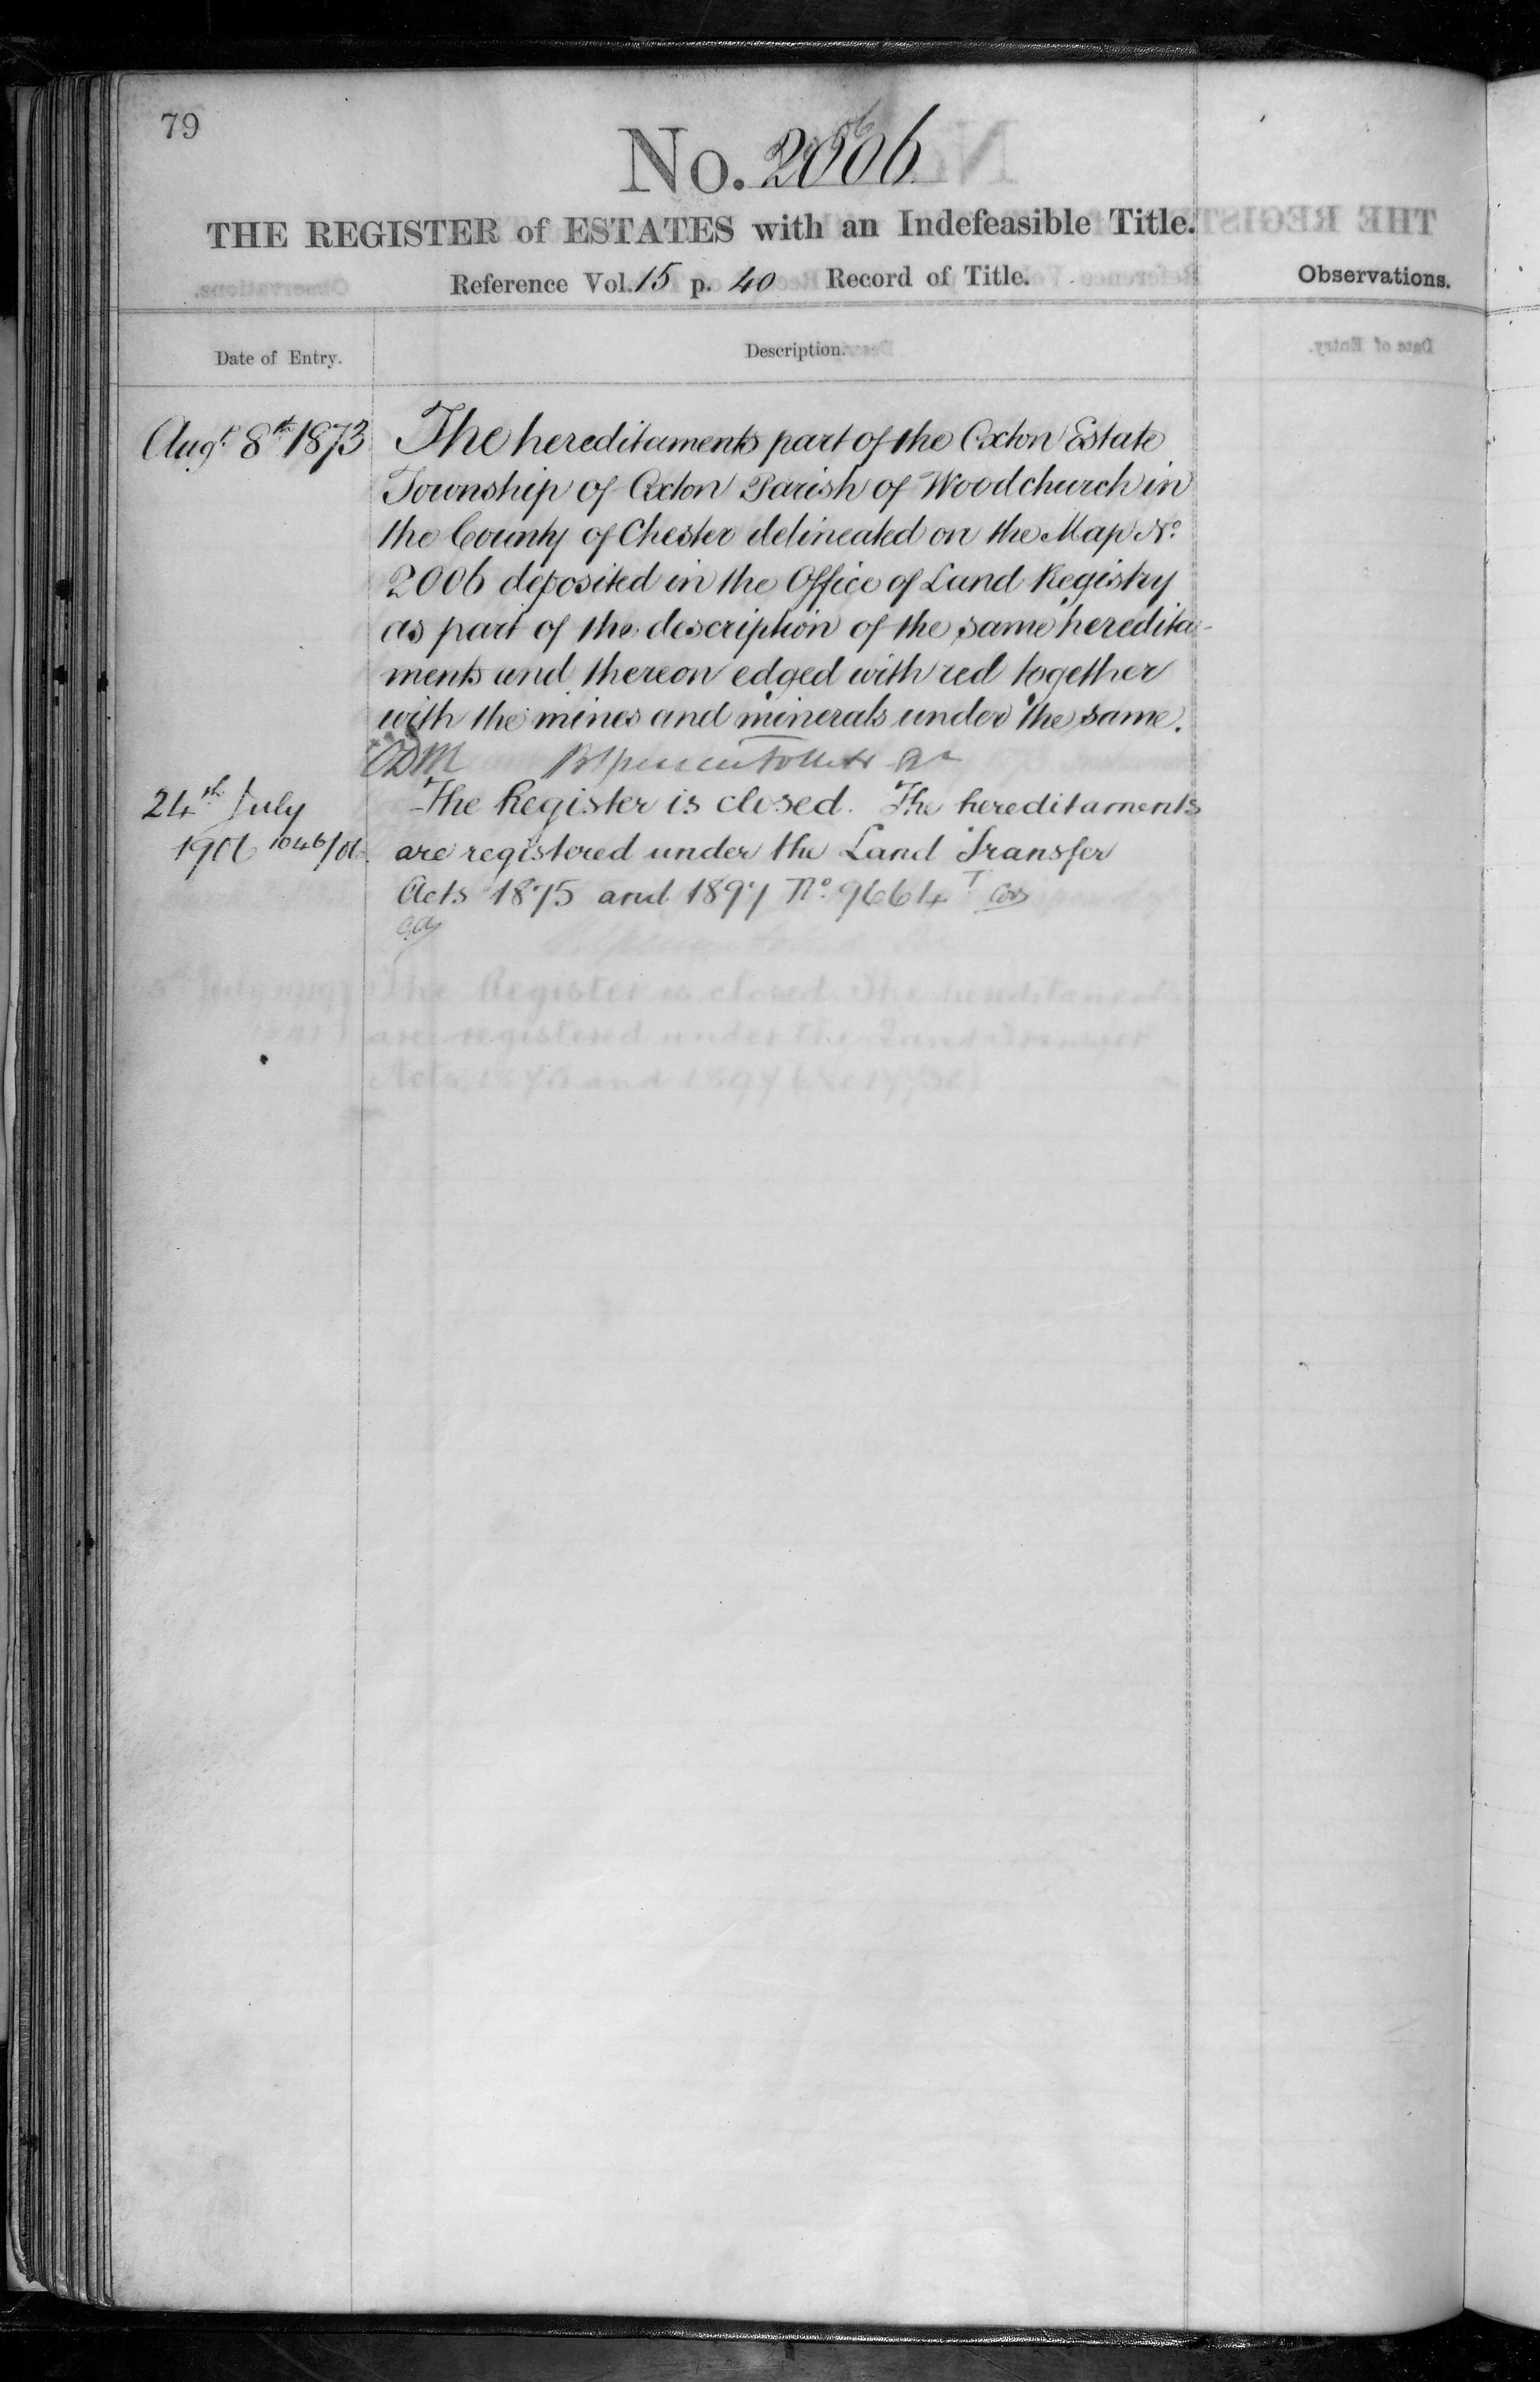 79
No. 2006
THE REGISTER of ESTATES with an Indefeasible Title.
Reference Vol. 15 p. 40 Record of Title.
Observations.
Date of Entry.
Description.
Augt. 8th 1873
The hereditaments part of the Oxton Estate
Township of Oxton Parish of Woodchurch in
the County of Chester delineated on the Map No.
2006 deposited in the Office of Land Registry
as part of the description of the same heredita-
ments and thereon edged with red together
with the mines and minerals under the same.
24th July
1906 1046/06.
The Register is closed. The hereditaments
are registered under the Land Transfer
Acts 1875 and 1897 No. 9664